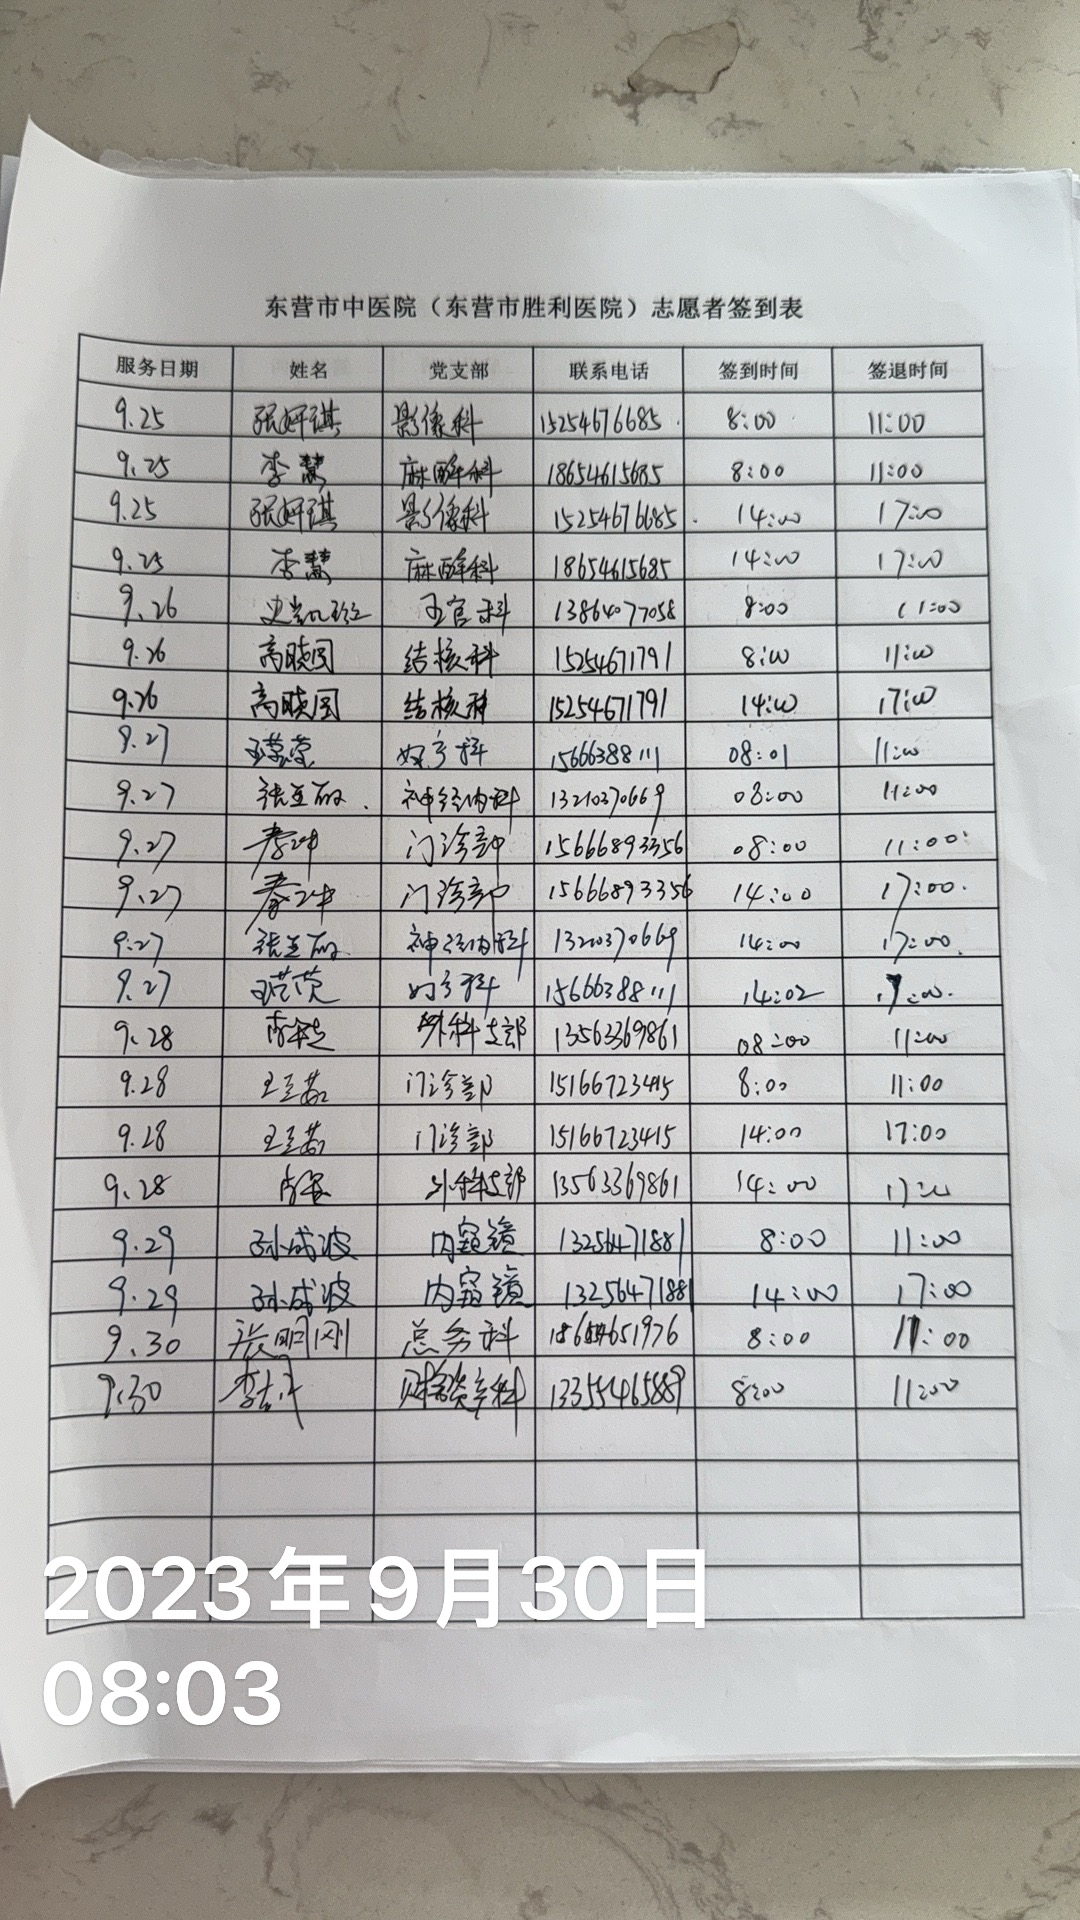 东营市中医院（东营市胜利医院）志愿者签到表
服务日期 姓名 党支部 联系电话 签到时间 签退时间
9.25 张妍琪 影像科 15254676685 8:00 11:00
9.25 李慧 麻醉科 18654615685 8:00 11:00
9.25 张妍琪 影像科 15254676685 14:00 17:00
9.25 李慧 麻醉科 18654615685 14:00 17:00
9.26 13864077058 8:00 11:00
9.26 高晓园 结核科 15254671791 8:00 11:00
9.26 高晓园 结核科 15254671791 14:00 17:00
9.27 妇产科 15666388111 08:01 11:00
9.27 神经内科 13210370669 08:00 11:00
9.27 门诊部 15666893356 08:00 11:00
9.27 门诊部 15666893356 14:00 17:00
9.27 神经内科 13210370669 14:00 17:00
9.27 妇产科 15666388111 14:02 17:00
9.28 外科支部 13563369861 08:00 11:00
9.28 门诊部 15166723415 8:00 11:00
9.28 门诊部 15166723415 14:00 17:00
9.28 外科支部 13563369861 14:00 17:00
9.29 孙成波 内窥镜 13256471881 8:00 11:00
9.29 孙成波 内窥镜 13256471881 14:00 17:00
9.30 张明刚 总务科 18654651976 8:00 11:00
9.30 13355465889 8:00 11:00
2023年9月30日
08:03